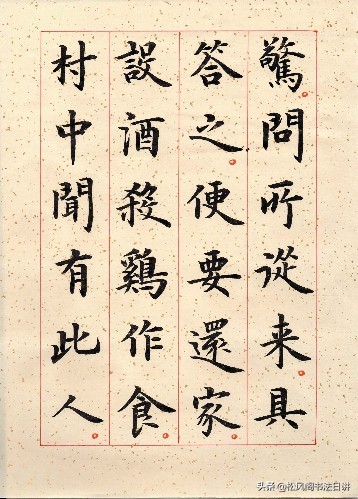 驚問所從来具
答之便要還家
設酒殺鷄作食
村中聞有此人
头条@松风阁书法日讲